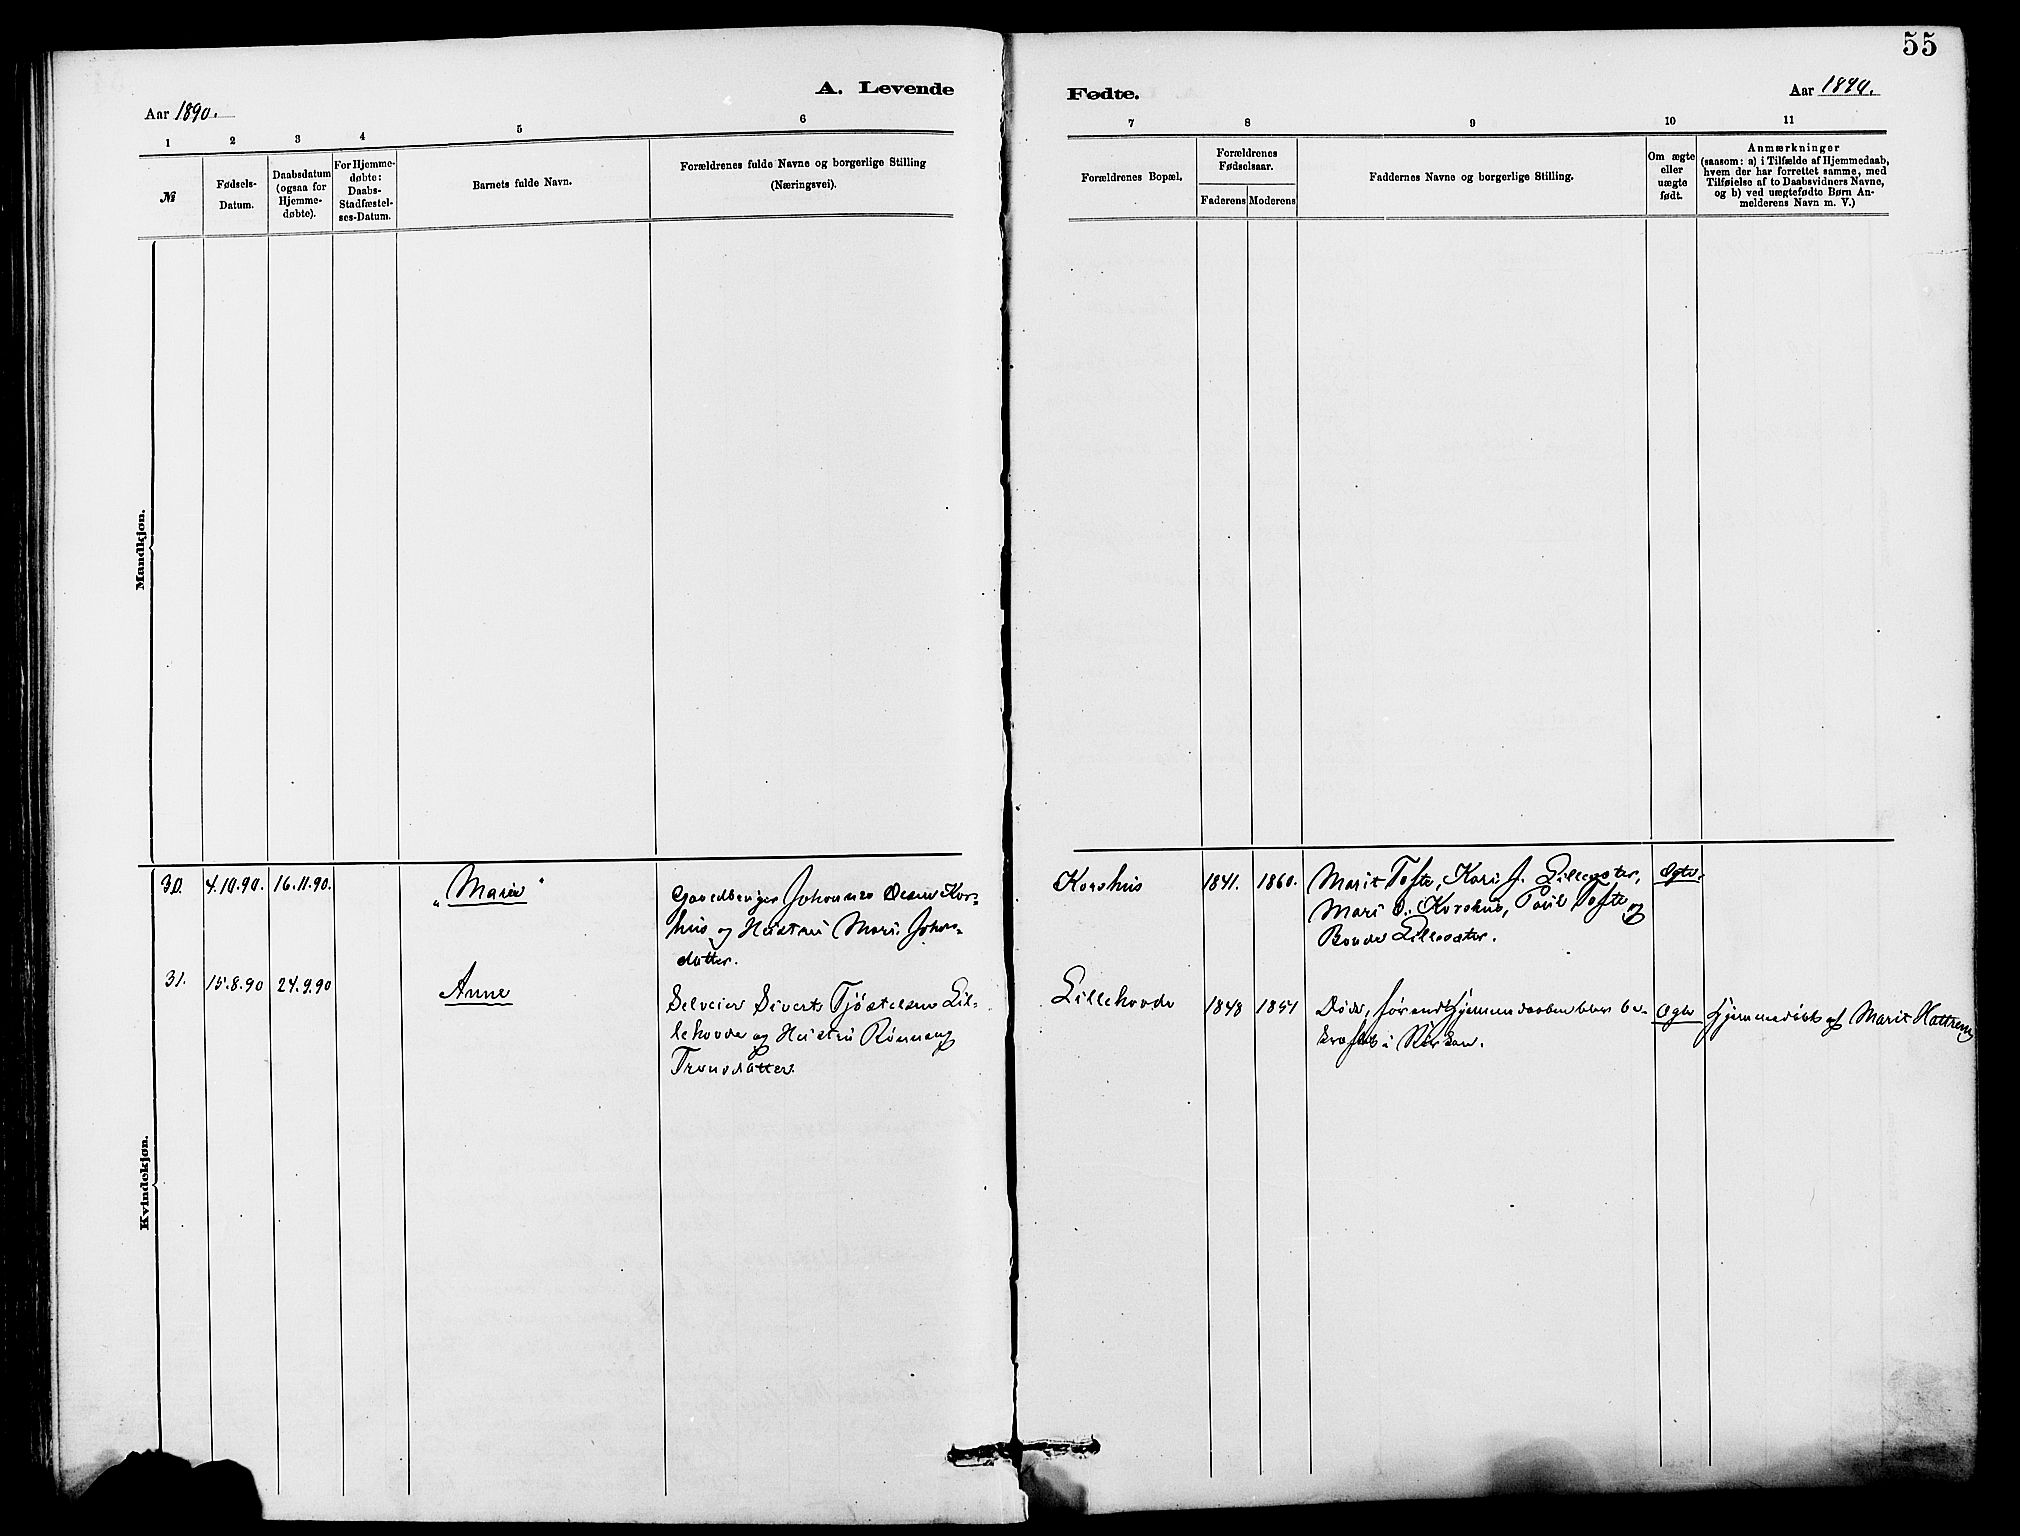 55
A. Levende
Fødte.
Aar 1890.
Aar 1890.
1 2 3 4 5 6 7 8 9 10 11
№
Fødsels-
Datum.
Daabsdatum
(ogsaa for
Hjemme-
døbte).
For Hjemme-
døbte:
Daabs-
Stadfæstel-
ses-Datum.
Barnets fulde Navn.
Forældrenes fulde Navne og borgerlige Stilling
(Næringsvei).
Forældrenes Bopæl.
Forældrenes
Fødselsaar.
Faderens Moderens
Faddernes Navne og borgerlige Stilling.
Om ægte
eller
uægte
født.
Anmærkninger
(saasom: a) i Tilfælde af Hjemmedaab,
hvem der har forrettet samme, med
Tilføielse af to Daabsvidners Navne,
og b) ved uægtefødte Børn An-
melderens Navn m. V.)
Mandkjøn.
Kvindekjøn.
30. 4.10.90. 16.11.90.
„Marie“
Gaardbruger Johannes Olsen Kors-
hus og Hustru Mari Johans-
datter.
Korshus
1841. 1860.
Marit Tofte, Kari J. Lillesæter,
Mari O. Korshus, Poul Tofte og
Lillesæter.
Ægte.
31. 15.8.90 24.9.90
Anne
Selveier Sivert Tjøstelsen Lil-
lehovde og Hustru Rønnaug
Trondsdatter.
Lillehovde
1848 1851
Døde, førend Hjemmedaaben blev be-
kræftet i Kirken.
Ægte
Hjemmedøbt af Marit Hattrem